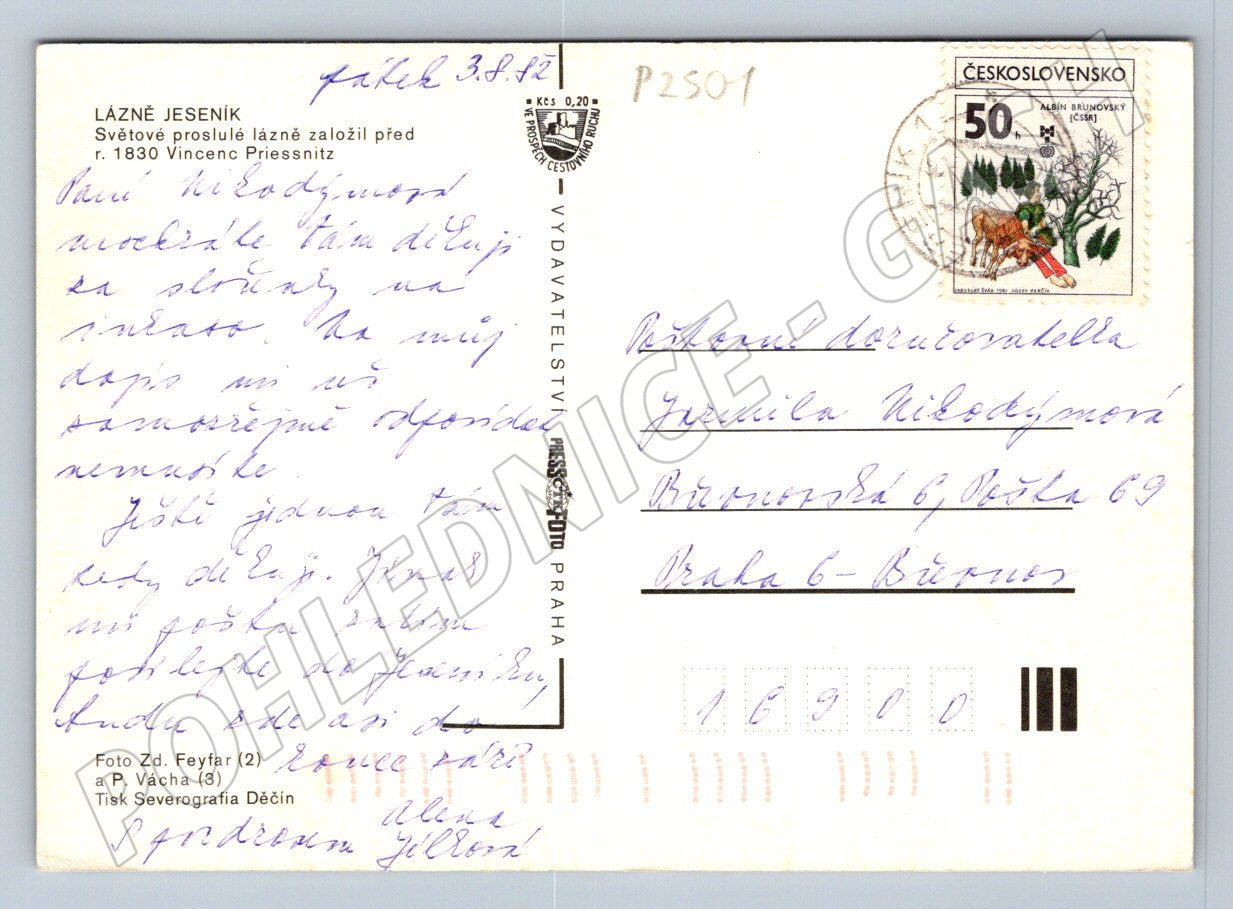 pátek 3.8.82
P2501
LÁZNĚ JESENÍK
Světové proslulé lázně založil před
r. 1830 Vincenc Priessnitz
Kčs 0,20
VE PROSPĚCH CESTOVNÍHO RUCHU
ČESKOSLOVENSKO
50 h
ALBÍN BRUNOVSKÝ
[ČSSR]
JAROSLAV ŠVÁB 1981 JOSEF HERČÍK
Paní Nikodýmová
mockráte Vám děkuji
za složenky na
inkaso. Na můj
dopis mi už
samozřejmě odpovídat
nemusíte.
Ještě jednou Vám
tedy děkuji. Jinak
mi poštu zatím
posílejte do Jeseníku,
budu zde asi do
konce září
S pozdravem Alena
Jílková
VYDAVATELSTVÍ
PRESSFOTO
ČTK
PRAHA
Poštovní doručovatelka
Jarmila Nikodýmová
Břevnovská 6, Pošta 69
Praha 6 - Břevnov
16900
Foto Zd. Feyfar (2)
a P. Vácha (3)
Tisk Severografia Děčín
POHLEDNICE - GASCH